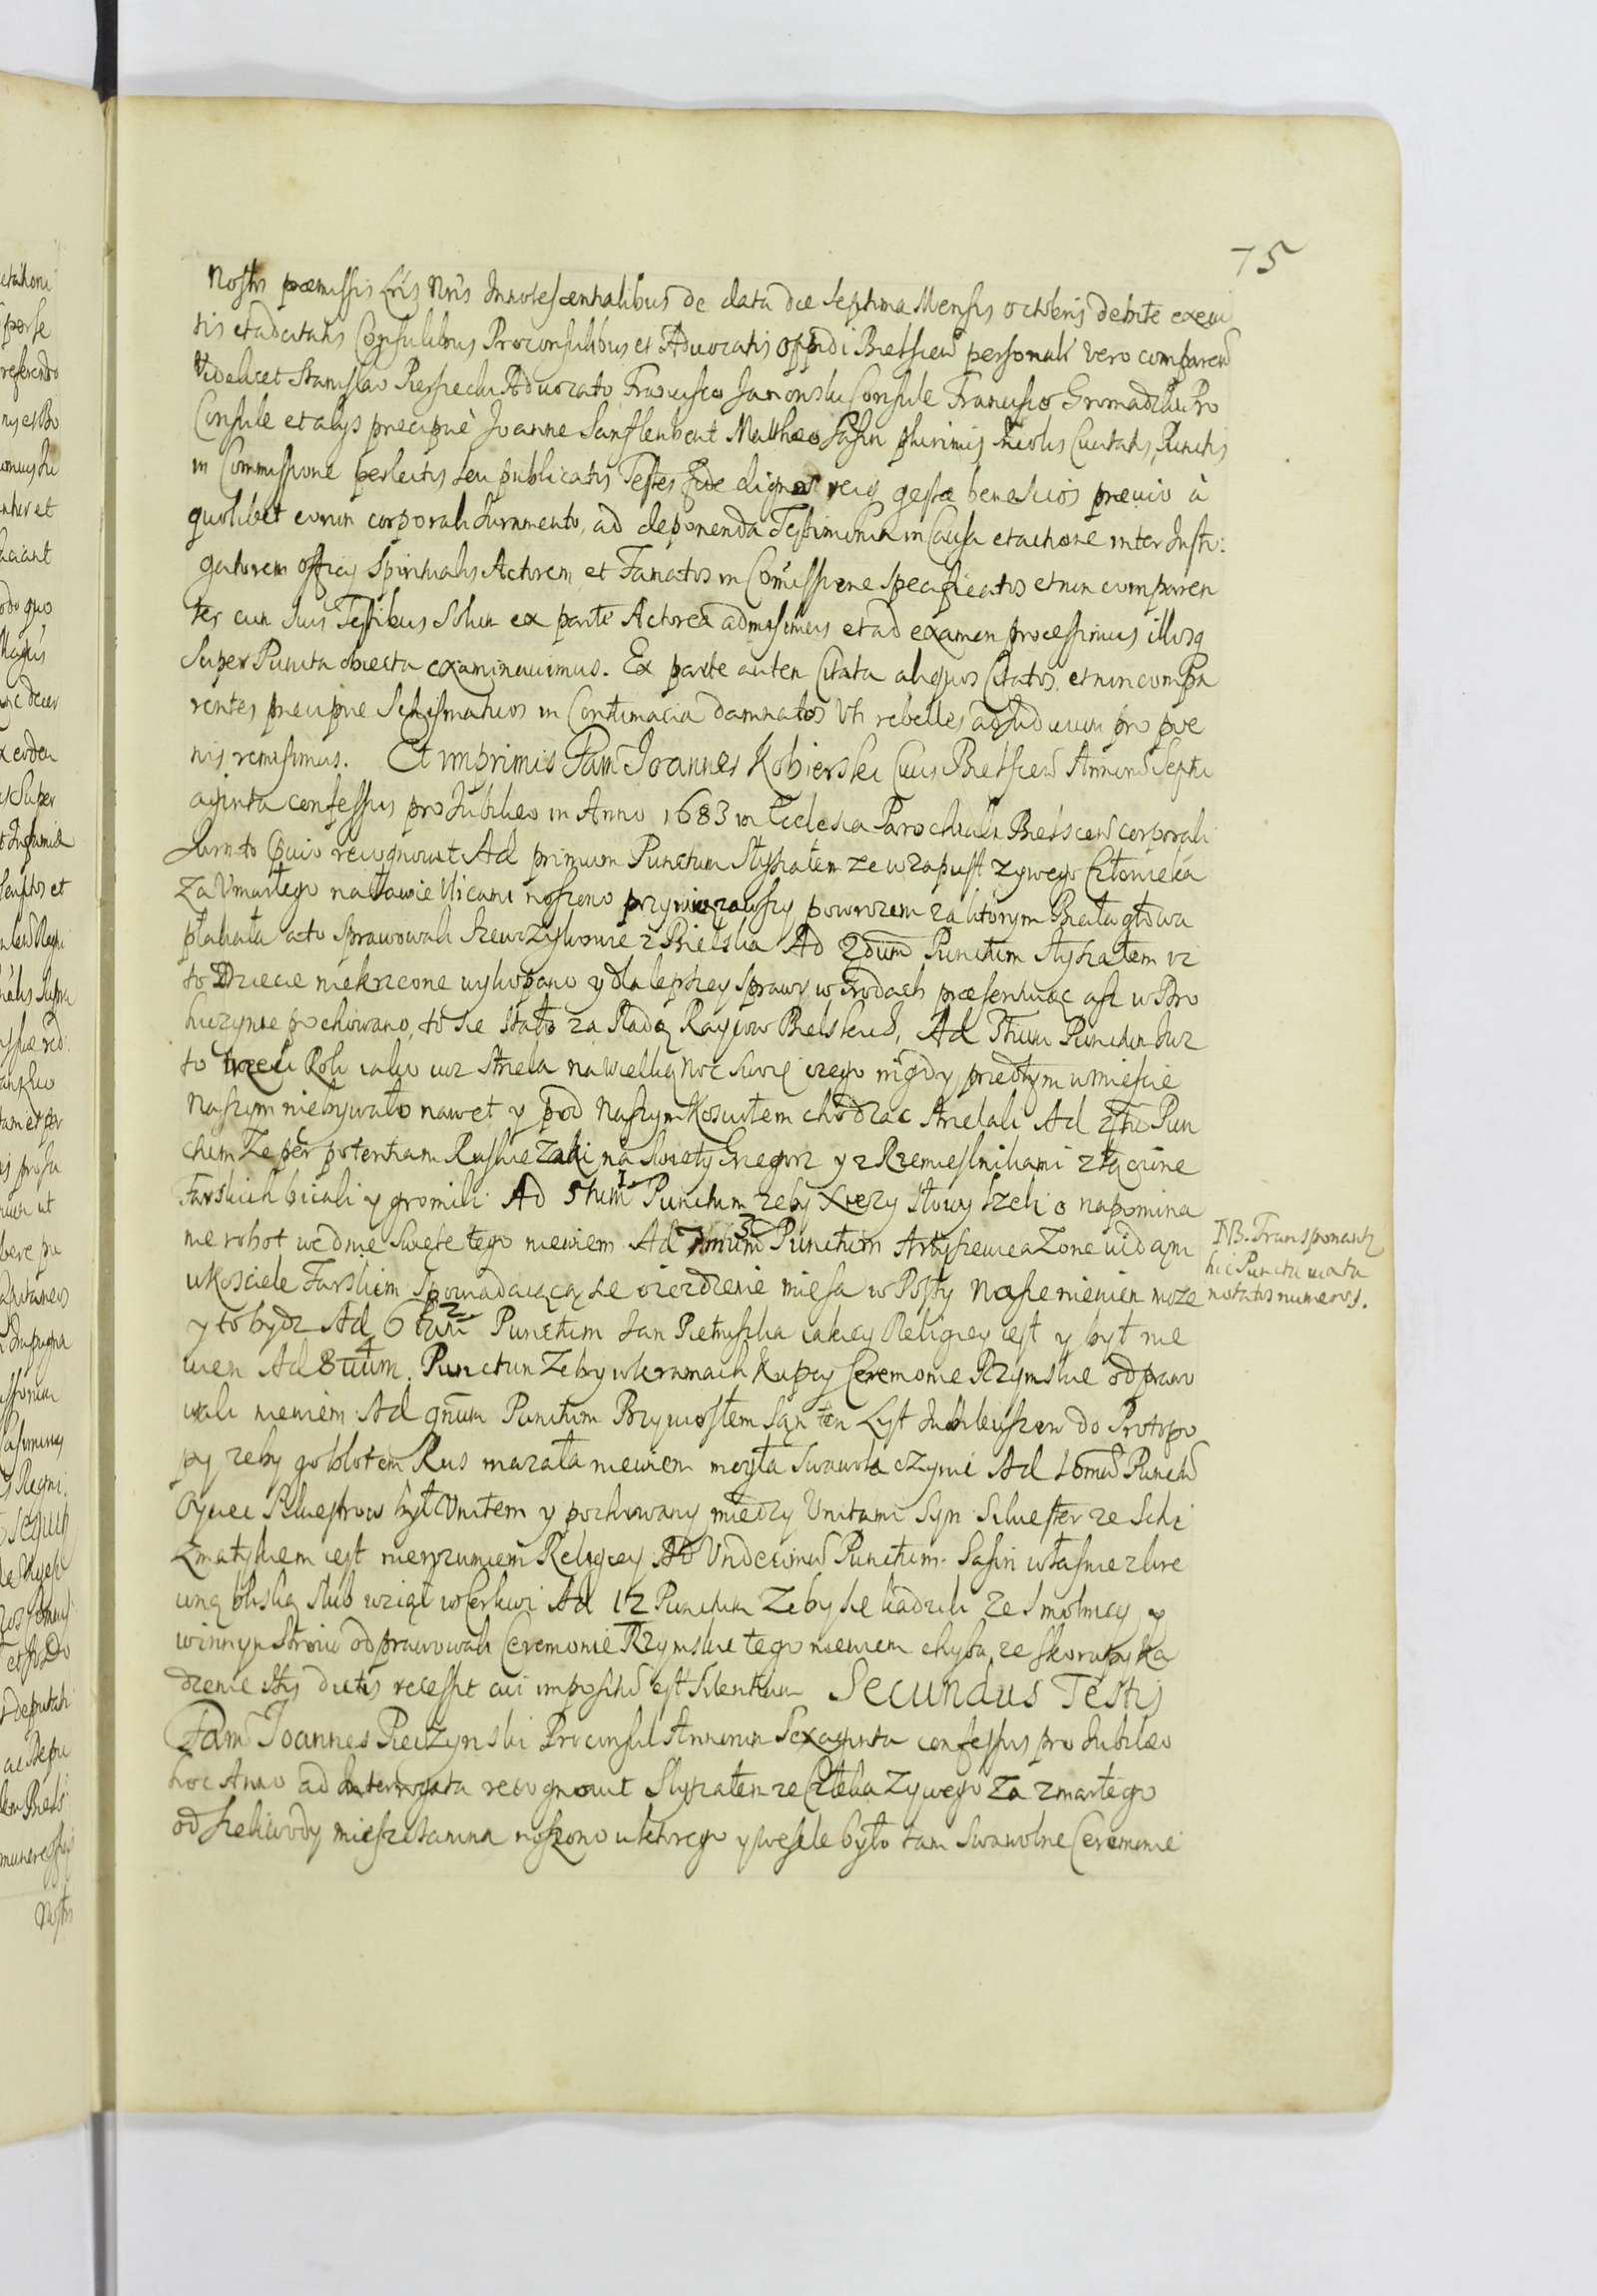 75
Nostris præmissis Lris Nris Innotescentialibus de data die Septima Mensis Octobris debite execu
tis et adcitatis Consulibus Proconsulibus et Aduocatis Oppidi Bielscen personalr vero comparen
Videlicet Stanislao Aduocato, Francisco Janonski Consule Francisco Gromadzki Pro
Consule et alys precipuè Joanne Matthæo Sasin plurimis Incolis Ciuitatis, Punctis
in Commissione perlectis seu publicatis Testes fide dignos reiq gestæ bene scios præuio à
quolibet eorum corporali Juramento, ad deponenda Testimonia in Causa et actione inter Insti:
gatorem Officij Spiritualis Actorem et Famatos in Comissione specificatos et non comparen
tes cum suis Testibus Solum ex parte Actorea admisimus et ad examen processimus illosq
Super Puncta obiecta examinauimus. Ex parte autem Citata aliquos Citatos et non compa
rentes precipue Schismaticos in Contumacia damnatos Vti rebelles ad Iudicium pro poe
nis remisimus. Et imprimis Fam Joannes Kobierski Ciuis Bielscen Annorū Septu
aginta confessus pro Jubileo in Anno 1683 in Ecclesia Parochiali Bielscen corporali
Jurnto recognouit Ad primum Punctum Słyszałem ze w zapust zywego Człowieka
Za Vmarłego na ławie Vlicami noszono przywiązawszy powrozem za ktorym Białagłowa
płakała a to Sprawowali Szewczykowie z Bielska Ad 2dum Punctum Słyszałem iz
to Dziecie niekrzcone wykopano y dla lepszey sprawy w Grodach præsentuiąc asz w Bro
huczynie pochowano, to sie stało za Radą Raycow Bielskich, Ad 3tium Punctum Iuz
to trzeci Rok iako iuz strzela na Wielką Noc Ruś czego nigdy przedtym w miescie
Naszym niebywało nawet y pod Naszym Kosciołem chodzac strzelali Ad 4tū Pun
ctum Ze per potentiam Ruskie Zaki na Swiety Grzegorz y z Rzemieslnikami złączone
Farskich bieali y gromili Ad 5tum 1 Punctum zeby Xięzy słowy lzeli o napomina
nie robot we dnie Swięte tego niewiem Ad 7mum 3 Punctum Artyszewicza Zone widzłm
w Kosciele Farskim Spowiadaiącą sie o iezdzenie miesa w Posty Nasze niewiem moze
y to bydz Ad 6tum 2 Punctum Jan Pietruszka iakiey Religiey iest y był nie
wiem Ad 8uum 4 Punctum Zeby w kramach Kupcy Ceremonie Rzymskie odprawo
wali niewiem Ad 9num Punctum Przyniosłem sąn ten Lyst Iubileuszow do Protopo
py zeby go błotem Rus mazała niewiem mogła Swawola czynic Ad 10mū Punctū
Oyciec Siluestrow był Vnitem y pochowany miedzy Vnitami Syn Siluester ze Schi
zmatykiem iest nierozumiem Religiey Ad Vndecimū Punctum. Sasin własnie z kre
wną bliską slub wziął w Cerkwi Ad 12 Punctum Zeby sie kadzili ze smolnicy y
w innym stroiu odprawowali Ceremonie Rzymskie tego niewiem chyba ze skorupy ka
dzenie Itis dictis recessit cui impositū est silentium Secundus Testis
Fam Joannes Pieczynski Proconsul Annorum Sexaginta confessus pro Jubilæo
hoc Anno ad Interrogata recognouit Słyszałem ze Czleka Zywego Za zmarłego
od Szeliwody mieszczanina noszono u ktorego y wesele było tam Swawolne Ceremonie
NB. Transponantr
hic Puncta iuxta
notatos numeros.